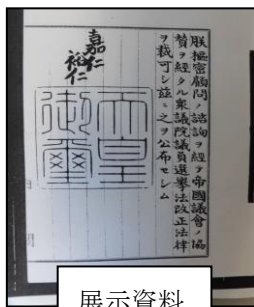 朕樞密顧問ノ諮詢ヲ經テ帝國議會ノ協
賛ヲ經タル衆議院議員選擧法改正法律
ヲ裁可シ茲ニ之ヲ公布セシム
嘉仁
裕仁
天皇
御璽
展示資料